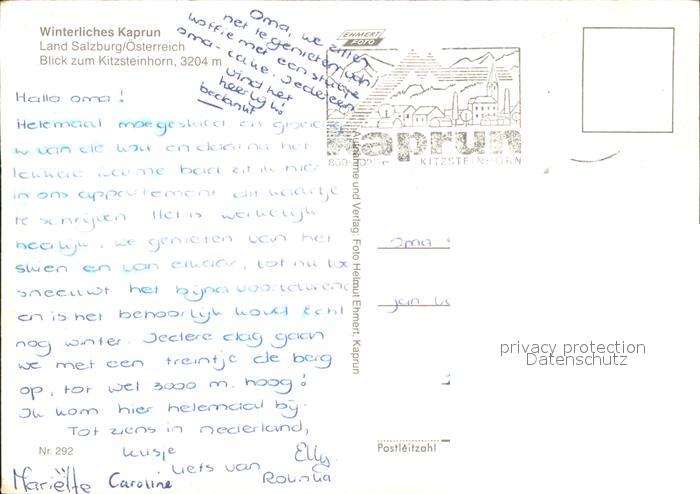 Winterliches Kaprun
Land Salzburg/Österreich
Blick zum Kitzsteinhorn, 3204 m
Oma, we zitten
net te genieten van
koffie met een stukje
oma-cake. Iedereen
vind het
heerlijk!
bedankt
EHMERT
FOTO
Kaprun
KITZSTEINHORN
Hallo oma!
Helemaal moegeskied en
van de kou en daarna het
lekkere warme bad zit ik hier
in ons appartement dit kaartje
te schrijven Het is werkelijk
heerlijk, we genieten van het
skien en van elkaar, tot nu toe
sneeuwt het bijna voortdurend
en is het behoorlijk koud Echt
nog winter. Iedere dag gaan
we met een treintje de berg
op, tot wel 3000 m. hoog!
Ik kom hier helemaal bij.
Tot ziens in nederland,
kusje Elly
liefs van
Mariëtte Caroline
Nr. 292
Aufnahme und Verlag: Foto Helmut Ehmert, Kaprun
oma
jan
Postleitzahl
privacy protection
Datenschutz